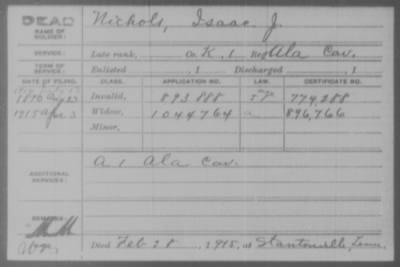 DEAD Nichols, Isaac J.
NAME OF SOLDIER:
SERVICE: Late rank, Co. K, 1 Reg Ala Cav.
TERM OF SERVICE: Enlisted , 1 Discharged , 1
DATE OF FILING. CLASS. APPLICATION NO. LAW. CERTIFICATE NO.
1890 Aug 23 Invalid, 893888 774,288
1915 Apr 3 Widow, 1044764 896,766
Minor,
A 1 Ala Cav.
ADDITIONAL SERVICES:
REMARKS:
Died Feb 28, 1915, at Stantonville, Tenn.